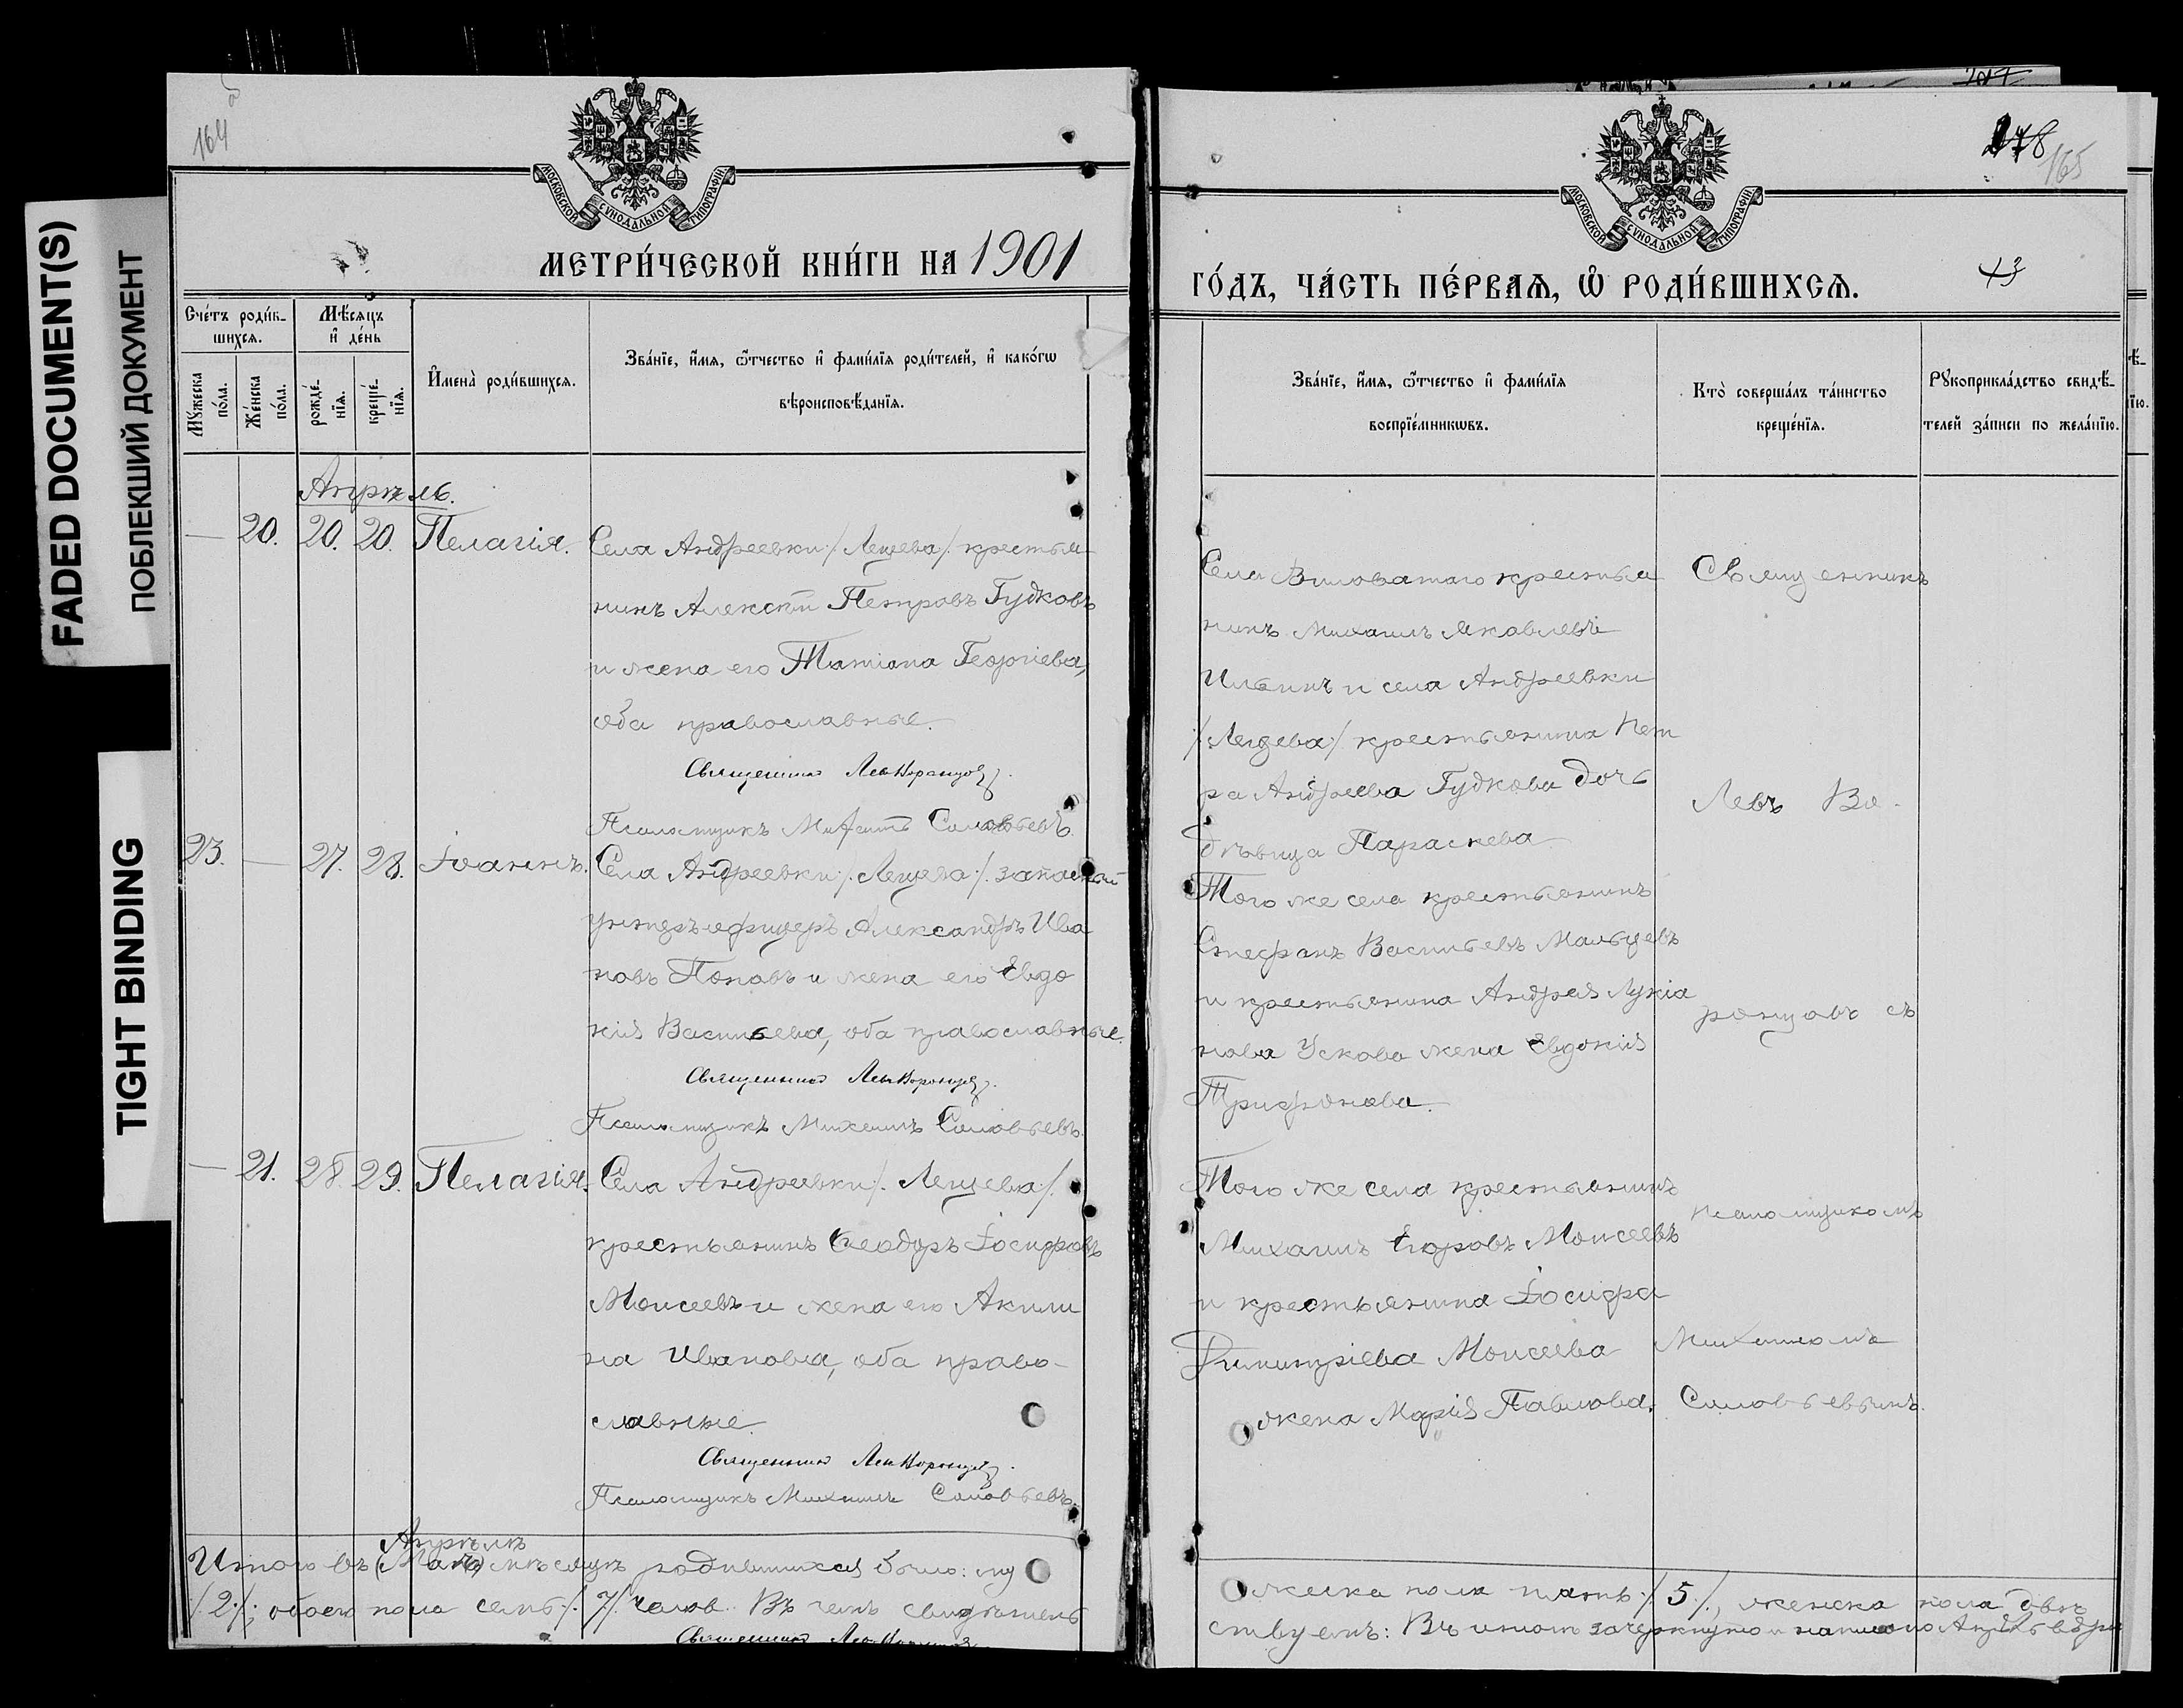 FADED DOCUMENT(S)
ПОБЛЕКШИЙ ДОКУМЕНТ
TIGHT BINDING
164
МОСКОВСКОЙ СѴНОДАЛЬНОЙ ТИПОГРАФІИ
МЕТРИ́ЧЕСКОЙ КНИ́ГИ НА 1901
Сче́тъ роди́в-
шихся.
Мѣ́сяцъ
и҆ де́нь
И҆мена̀ роди́вшихся.
Зва́нїе, и҆́мя, ѻ҆́тчество и҆ фами́лїя роди́телей, и҆ како́гѡ
вѣроисповѣ́данїя.
Мꙋ́жеска
по́ла.
Же́нска
по́ла.
рожде́-
нїя.
креще́-
нїя.
Апрѣль.
— 20. 20. 20. Пелагія. Села Андреевки /. Лещева /. крестья-
нинъ Алексѣй Петровъ Гудковъ
и жена его Татіана Георгіева,
оба православные.
Священникъ Левъ Воронцовъ.
Псаломщикъ Соловьевъ.
23. — 27. 28. Іоаннъ. Села Андреевки /. Лещева /. запасный
унтеръ-офицеръ Александръ Ива
новъ Поповъ и жена его Евдо
кія Васильева, оба православные.
Священникъ Левъ Воронцовъ.
Псаломщикъ Михаилъ Соловьевъ.
— 21. 28. 29. Пелагія. Села Андреевки /. Лещева /.
крестьянинъ Ѳеодоръ Іосифовъ
Моисеевъ и жена его Акили
на Иванова, оба право-
славные.
Священникъ Левъ Воронцовъ.
Псаломщикъ Михаилъ Соловьевъ.
Апрѣлѣ
Итого въ (Маѣ) мѣсяцѣ родившихся было: му
/. 2 /.; обоего пола семь /. 7 /. челов. Въ чемъ свидѣтель
Священникъ Левъ Воронцовъ
178
165
МОСКОВСКОЙ СѴНОДАЛЬНОЙ ТИПОГРАФІИ
ГО́ДЪ, ЧА́СТЬ ПЕ́РВАЯ, Ѡ҆ РОДИ́ВШИХСЯ.
Зва́нїе, и҆́мя, ѻ҆́тчество и҆ фами́лїя
воспрїе́мникѡвъ.
Кто̀ соверша́лъ та́инство
креще́нїя.
Рꙋкоприкла́дство свидѣ́-
телей за́писи по жела́нїю.
Села Виловатаго крестья
нинъ Михаилъ Яковлевъ
Ильинъ и села Андреевки
/. Лещева /. крестьянина Пет
ра Андреева Гудкова дочь
дѣвица Параскева
Того же села крестьянинъ
Стефанъ Васильевъ Мальцевъ
и крестьянина Андрея Лукіа
нова Ускова жена Евдокія
Трифонова.
Того же села крестьянинъ
Михаилъ Егоровъ Моисеевъ
и крестьянина Іосифа
Димитріева Моисеева
жена Марія Павлова.
Священникъ
Левъ Во-
ронцовъ съ
псаломщикомъ
Михаиломъ
Соловьевымъ.
жеска пола пять /. 5 /., женска пола двѣ
ствуемъ: Въ итогѣ зачеркнуто и написано